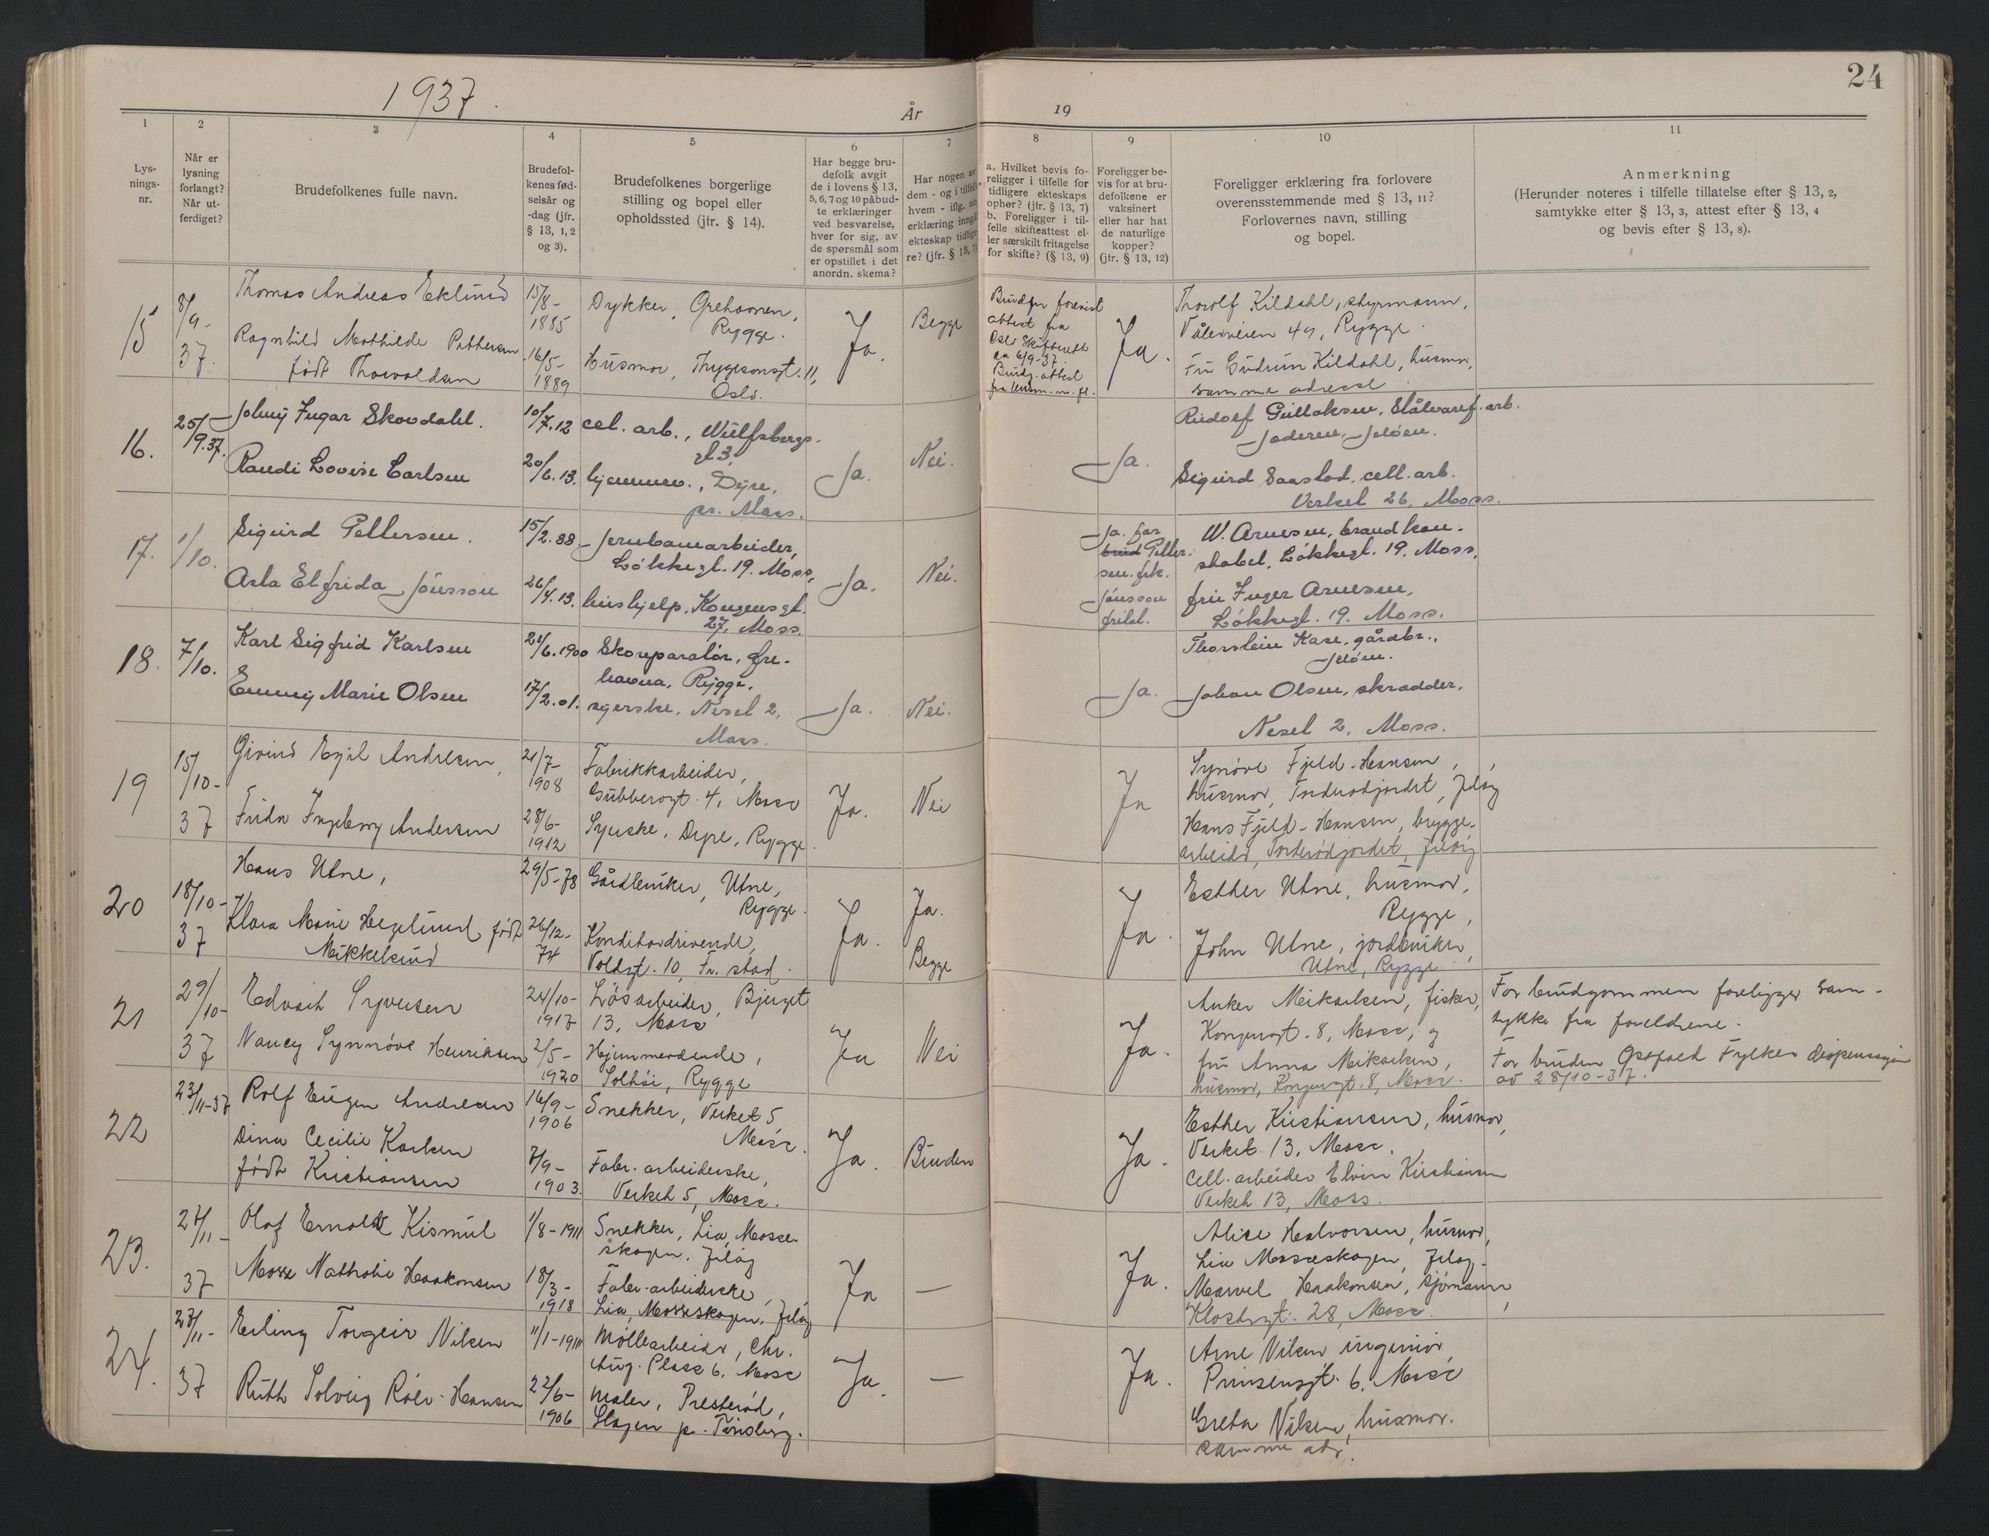 24
1937.
År
19
1
2
3
4
5
6
7
8
9
10
11
Lys-
nings-
nr.
Når er
lysning
forlangt?
Når ut-
ferdiget?
Brudefolkenes fulle navn.
Brudefol-
kenes fød-
selsår og
-dag (jfr.
§ 13, 1, 2
og 3).
Brudefolkenes borgerlige
stilling og bopel eller
opholdssted (jfr. § 14).
Har begge bru-
defolk avgit
de i lovens § 13,
5, 6, 7 og 10 påbud-
te erklæringer
ved besvarelse,
hver for sig, av
de spørsmål som
er opstillet i det
anordn. skema?
Har nogen av
dem - og i tilfelle
hvem - iflg. sin
erklæring inngått
ekteskap tidlige-
re? (jfr. § 13, 7)
a. Hvilket bevis fo-
religger i tilfelle for
tidligere ekteskaps
ophør? (jfr. § 13, 7)
b. Foreligger i til-
felle skifteattest el-
ler særskilt fritagelse
for skifte? (§ 13, 9)
Foreligger be-
vis for at bru-
defolkene er
vaksinert
eller har hat
de naturlige
kopper?
(jfr. § 13, 12)
Foreligger erklæring fra forlovere
overensstemmende med § 13, 11?
Forlovernes navn, stilling
og bopel.
Anmerkning
(Herunder noteres i tilfelle tillatelse efter § 13, 2,
samtykke etter § 13, 3, attest efter § 13, 4
og bevis efter § 13, 8).
15
8/9-
37.
Thomas Andreas Eklund
Ragnhild Mathilde Pettersen
født Thorvaldsen
15/8-
1885
16/5-
1889
Dykker, Grehavnen,
Rygge.
Husmor, Thygesonsgt. 11,
Oslo.
Ja.
Begge
attest fra
Oslo Skifterett
6/9-37.
Ja.
Thorolf Kildahl, styrmann,
Vålerveien 49, Rygge.
Fru Gudrun Kildahl, husmor,
samme adresse
16.
25/9.37.
Johny Ingar Skovdahl.
Randi Lovise Carlsen
10/7.12
20/6.13.
cel. arb., Wulfsbergs-
gt 3,
hjemmev., Dyre,
pr. Moss.
Ja.
Nei.
Ja.
Rudolf Gullaksen, Stålvaref. arb.
Jaderen, Jeløen.
Sigurd Saastad, cell. arb.
Verket 26, Moss.
17.
1/10.
Sigurd Pettersen.
Asla Elfrida Jónsson
15/2.88
26/4.13.
Jernbanearbeider,
Løkkegt. 19. Moss,
hushjelp, Kongensgt.
27, Moss.
Ja.
Nei.
Ja. for
brud Petter-
sen. frk.
Jónsson
fritt.
W. Arnesen, brand kon-
stabel, Løkkegt. 19. Moss,
fru Inger Arnesen,
Løkkegt. 19. Moss.
18.
7/10.
Karl Sigfrid Karlsen
Emmy Marie Olsen
24/6.1900
17/2.01.
Skoreparatør, Gre-
havna, Rygge.
syerske, Neset 2,
Moss.
Ja.
Nei.
Ja.
Thorstein Kase, gårdbr.,
Jeløen.
Johan Olsen, skrædder,
Neset 2, Moss.
19
15/10-
37
Øivind Egil Andresen,
Frida Ingeborg Andersen
21/7-
1908
28/6-
1912
Fabrikkarbeider,
Gubberogt. 4, Moss
Syerske, Dyre, Rygge.
Ja.
Nei
Ja
Synøve Fjeld-Hansen,
husmor, Torderødjordet, Jeløy
Hans Fjeld-Hansen, brygge-
arbeider, Torderødjordet, Jeløy
20
18/10-
37
Hans Utne,
Klara Marie Hegelund født
Mikkelsund
29/5-78
26/12-
74
Gårdbruker, Utne,
Rygge.
Konditordrivende,
Voldgt. 10, Fr. stad.
Ja.
Ja.
Begge
Ja.
Esther Utne, husmor,
Rygge,
John Utne, jordbruker,
Utne, Rygge
21
29/10-
37
Edvart Syversen
Nancy Synnøve Henriksen
24/10-
1917
2/5-
1920
Løsarbeider, Bjerget
13, Moss
Hjemmeværende,
Solhøi, Rygge
Ja
Nei
Ja.
Anker Mikarlsen, fisker,
Kongensgt. 8, Moss, og
fru Anna Mikarlsen,
husmor, Kongensgt. 8, Moss.
For brudgommen foreligger sam-
tykke fra foreldrene.
For bruden Østfold Fylkes dispensasjon
av 28/10-37.
22
23/11-37
Rolf Eugen Andresen
Dina Cecilie Karlsen
født Kristiansen
16/9-
1906
7/9-
1903.
Snekker, Verket 5
Moss.
Fabr. arbeiderske,
Verket 5, Moss.
Ja.
Bruden
Ja.
Esther Kristiansen, husmor,
Verket 13, Moss.
cell. arbeider Elvin Kristiansen
Verket 13, Moss.
23.
24/11-
37
Olaf Ernoldt Kismul
Mosse Nathalie Haakonsen
1/8-1911
18/3-
1918
Snekker, Lia, Mosse-
skogen, Jeløy
Fabr. arbeiderske,
Lia, Mosseskogen, Jeløy
Ja
—
Ja.
Alice Halvorsen, husmor,
Lia Mosseskogen, Jeløy.
Marvel Haakonsen, sjømann,
Klostergt. 28, Moss.
24.
23/11-
37
Erling Torgeir Nilsen
Ruth Solveig Röer-Hansen
11/1-1911
22/6-
1906
Møllearbeider, Chr.
Aug. Plass 6, Moss
maler, Presterød,
Slagen pr. Tønsberg.
Ja.
—
Ja.
Arne Nilsen ingeniør
Prinsensgt. 6. Moss
Greta Nilsen, husmor.
samme adr.